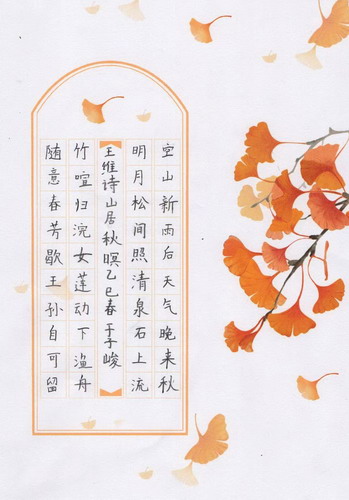 空山新雨后天气晚来秋
明月松间照清泉石上流
王维诗山居秋暝乙巳春于峻
竹喧归浣女莲动下渔舟
随意春芳歇王孙自可留